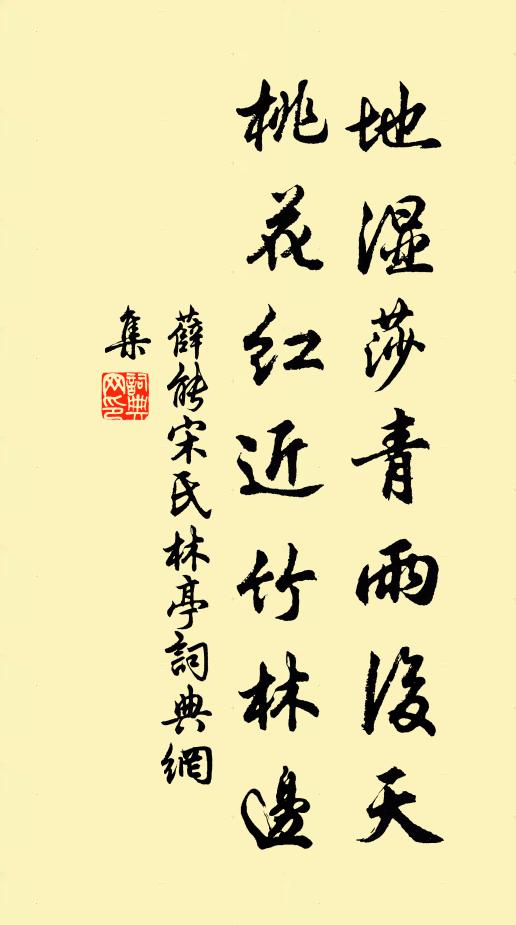 地湿莎青雨後天
桃花红近竹林邊
薛能宋氏林亭詞典網
集
詞典
网印